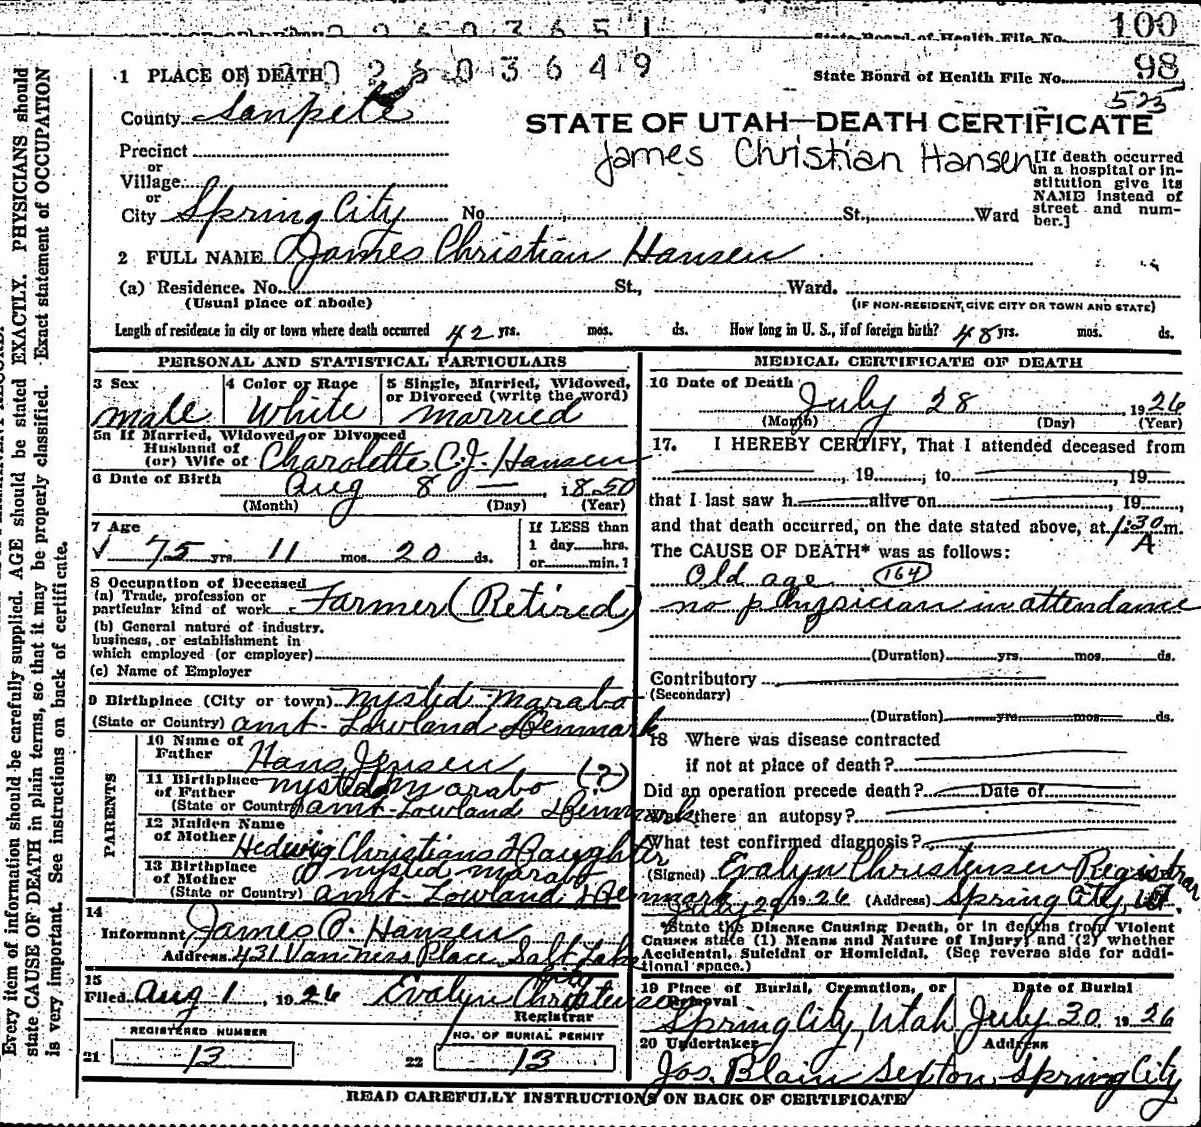 State Board of Health File No. 100
0 2 6 0 3 6 4 9
1 PLACE OF DEATH
State Board of Health File No. 98
525
County Sanpete
STATE OF UTAH—DEATH CERTIFICATE
James Christian Hansen
Precinct
or
Village
or
City Spring City No. , St., Ward
[If death occurred in a hospital or institution give its NAME instead of street and number.]
2 FULL NAME James Christian Hansen
(a) Residence. No. St., Ward.
(Usual place of abode)
(IF NON-RESIDENT, GIVE CITY OR TOWN AND STATE)
Length of residence in city or town where death occurred 42 yrs. mos. ds. How long in U. S., if of foreign birth? 48 yrs. mos. ds.
PERSONAL AND STATISTICAL PARTICULARS
3 Sex male
4 Color or Race White
5 Single, Married, Widowed, or Divorced (write the word) married
5a If Married, Widowed, or Divorced
Husband of
(or) Wife of Charolette C. J. Hansen
6 Date of Birth Aug 8 — , 1850
(Month) (Day) (Year)
7 Age
75 yrs. 11 mos. 20 ds.
If LESS than
1 day hrs.
or min.?
8 Occupation of Deceased
(a) Trade, profession or
particular kind of work Farmer (Retired)
(b) General nature of industry.
business, or establishment in
which employed (or employer)
(c) Name of Employer
9 Birthplace (City or town) Nysted Marabo
(State or Country) amt. Lowland Denmark
PARENTS
10 Name of
Father Hans Jensen (?)
11 Birthplace
of Father Nysted Marabo
(State or Country) amt. Lowland Denmark
12 Maiden Name
of Mother Hedwig Christians Daughter
13 Birthplace
of Mother Nysted Marabo
(State or Country) amt. Lowland Denmark
14
Informant James C. Hansen
Address 431 Place Salt Lake
City
15
Filed Aug 1, 1926 Evalyn Christensen
Registrar
REGISTERED NUMBER
21 13
NO. OF BURIAL PERMIT
22 13
MEDICAL CERTIFICATE OF DEATH
16 Date of Death
July 28, 1926
(Month) (Day) (Year)
17. I HEREBY CERTIFY, That I attended deceased from
, 19 ; to , 19
that I last saw h alive on , 19 ,
and that death occurred, on the date stated above, at 1:30 A m.
The CAUSE OF DEATH* was as follows:
Old age 164
no physician in attendance
(Duration) yrs. mos. ds.
Contributory
(Secondary)
(Duration) yrs. mos. ds.
18 Where was disease contracted
if not at place of death?
Did an operation precede death? Date of
Was there an autopsy?
What test confirmed diagnosis?
(Signed) Evalyn Christensen Registrar
July 29 1926 (Address) Spring City, Ut.
*State the Disease Causing Death, or in deaths from Violent
Causes state (1) Means and Nature of Injury; and (2) whether
Accidental, Suicidal or Homicidal. (See reverse side for addi-
tional space.)
19 Place of Burial, Cremation, or
Removal
Spring City, Utah
Date of Burial
July 30 1926
20 Undertaker
Jos. Blain Sexton
Address
Spring City
READ CAREFULLY INSTRUCTIONS ON BACK OF CERTIFICATE
Every item of information should be carefully supplied. AGE should be stated EXACTLY. PHYSICIANS should
state CAUSE OF DEATH in plain terms, so that it may be properly classified. Exact statement of OCCUPATION
is very important. See instructions on back of certificate.